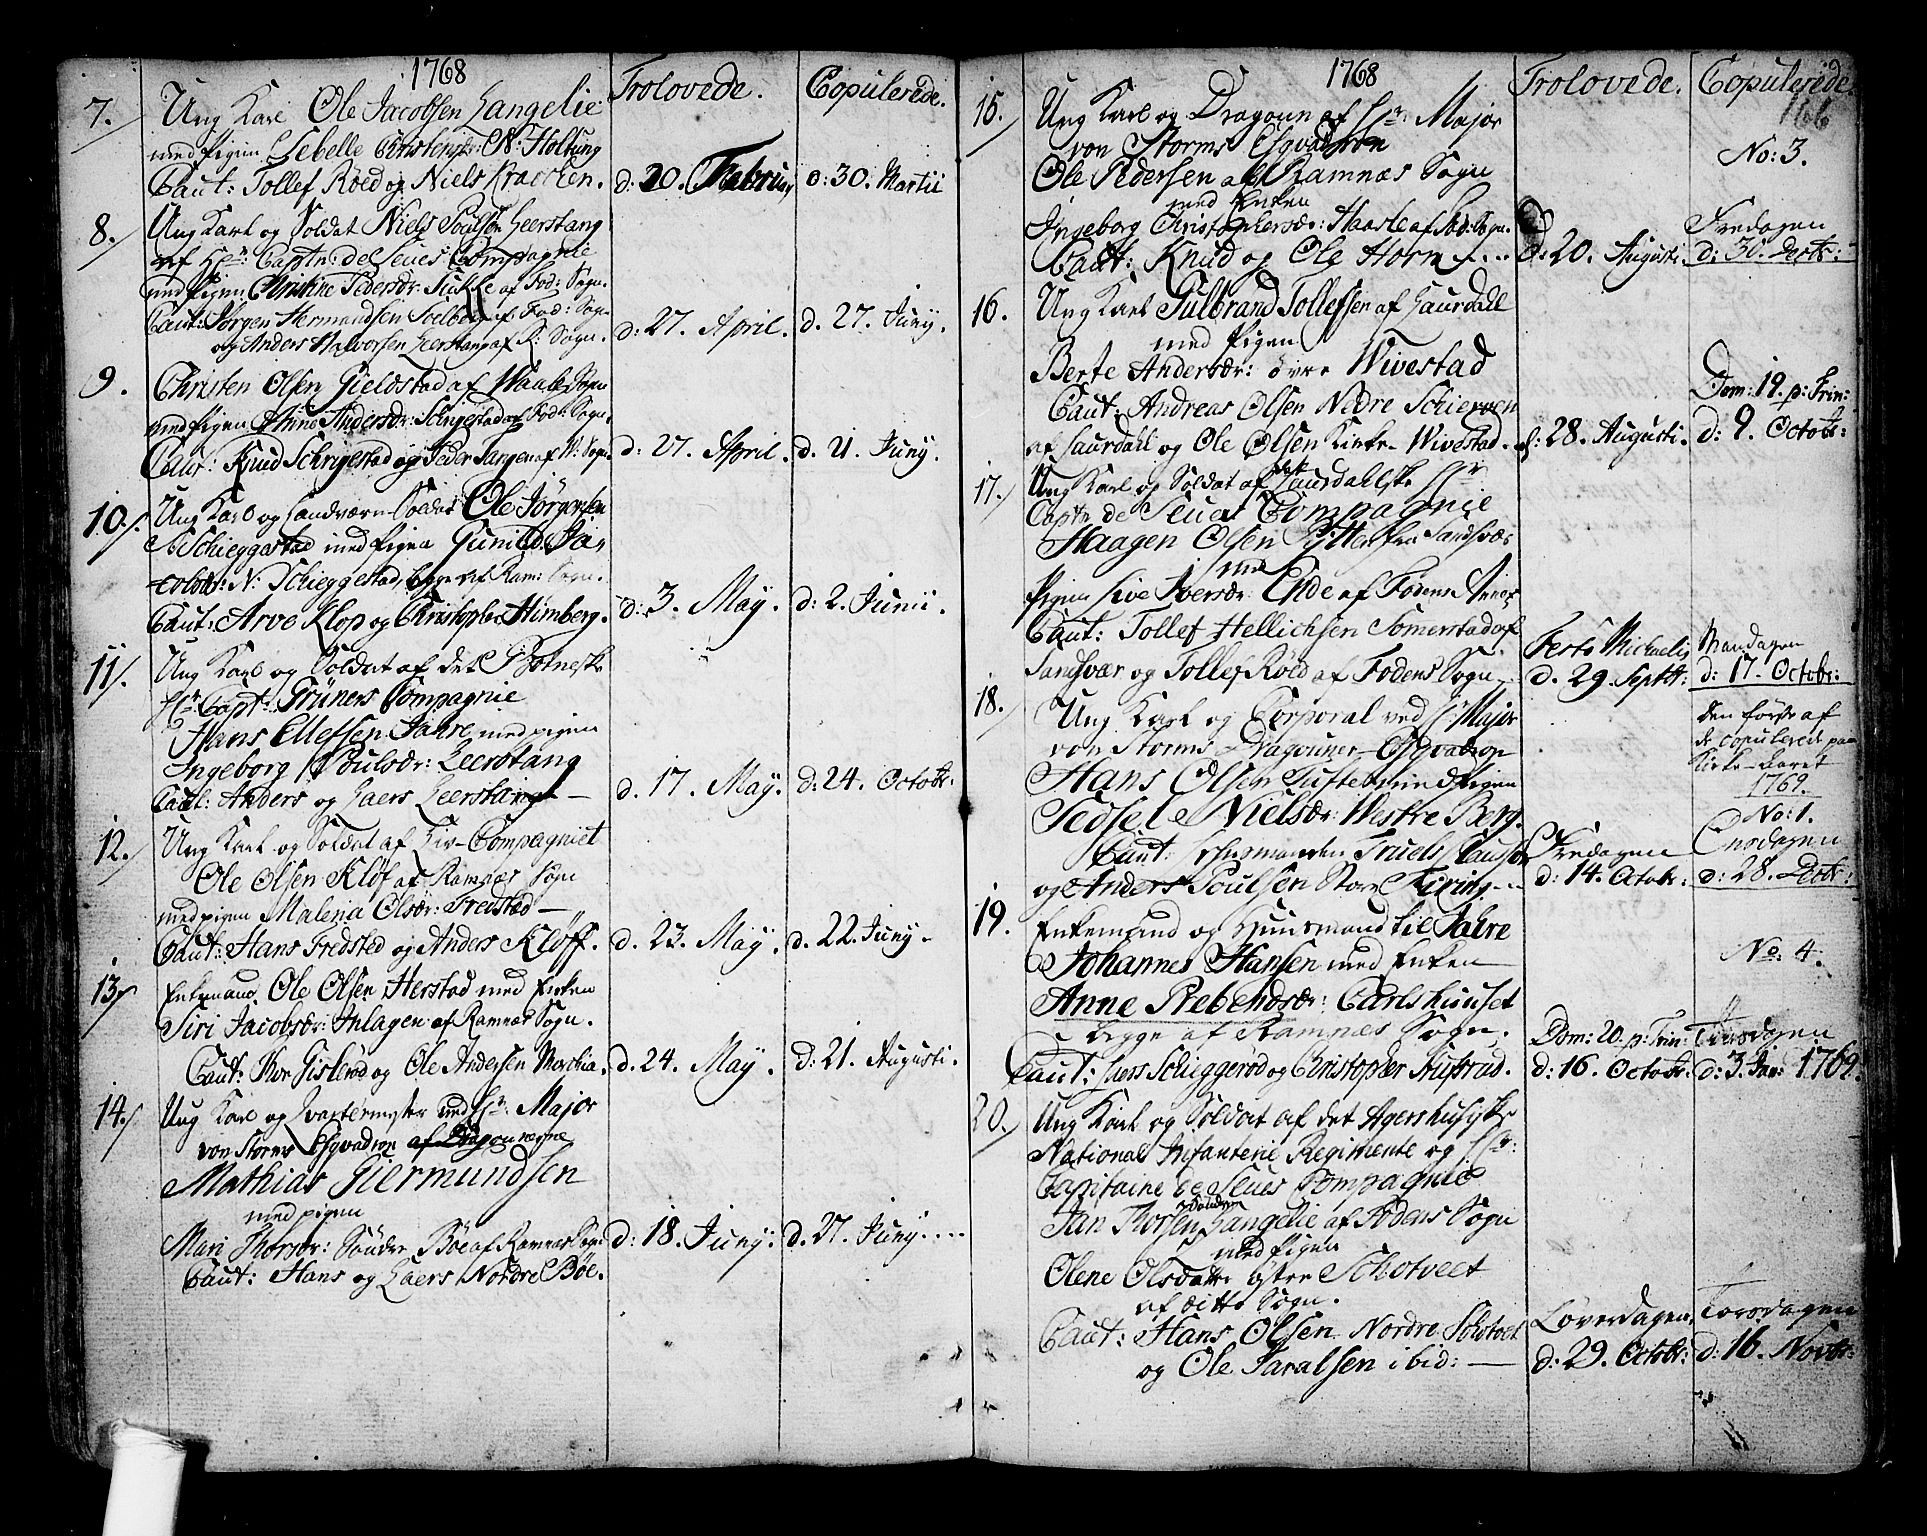 1768
Trolovede.
Copulerede.
7. Ung Karl Ole Jacobsen Langelie
med pigen Lebelle Christensdr: N: Holtung
Caut: Tollef Röed og Niels Kracken. d: 20. Februar, d: 30. Martii
8. Ung Karl og Soldat Niels Poulsön Leerstang
af Hr: Captn: de Seues Compagnie
med pigen Christine Pedersdr: af Fod: Sogn.
Caut: Jörgen Hermandsen Solberg af Fod: Sogn
og Anders Halvorsen Leerstang af R: Sogn. d: 27. April. d. 27. Juny.
9. Christen Olsen Gieldstad af Waale Sogn
med pigen Anne Andersdr: Schrigestad af Fod: Sogn.
Caut: Knud Schrigestad og Peder Tangen af W: Sogn. d: 27. April. d. 21. Juny.
10. Ung Karl og Landværn Soldat Ole Jörgensen
N: Schieggestad med pigen Gunild Ja-
cobdr: N: Schieggestad, begge af Ram: Sogn.
Caut: Arve Klop og Christopher Himberg. d: 3. May. d: 2. Junii.
11. Ung Karl og Soldat af det Botneske
Hr: Capt: Grüners Compagnie
Hans Ellefsen Jahre med pigen
Ingeborg Poulsdr: Leerstang
Caut: Anders og Laers Leerstang — d. 17. May. d: 24. Octobr:
12. Ung Karl og Soldat af Liv-Compagniet
Ole Olsen Klöf af Ramnæs Sogn
med pigen Malena Olsdr: Fredstad —
Caut: Hans Fredsted og Anders Klöff. d. 23. May. d. 22. Juny.
13. Enkemand Ole Olsen Herstad med Enken
Siri Jacobsdr: Anlagen af Ramnæs Sogn.
Caut: Thor Gislerød og Ole Andersen d. 24. May. d: 21. Augusti.
14. Ung Karl og Qvartermester ved Hr: Major
von Storms Esqvadron af Dragounerne
Mathias Giermundsen
med pigen
Mari Thorsdr: Söndre Böe af Ramnæs Sogn d: 18. Juny. d. 27. Juny....
Caut: Hans og Laers Nordre Böe.
1768
Trolovede.
Copulerede.
166
15. Ung Karl og Dragoun af Hr: Major
von Storms Esqvadron
Ole Pedersen af Ramnæs Sogn
med Enken
Ingeborg Christophersdr: Haasle af Fod: Sogn.
Caut: Knud og Ole Horn.... d: 20. Augusti.
No: 3.
Fredagen
d: 30. Decbr:
16. Ung Karl Gulbrand Tollefsen af Laurdall
med Pigen
Berte Andersdr: övre Wivestad
Caut: Andreas Olsen Nedre Schierven
af Laurdahl og Ole Olsen Kirke-Wivestad. d: 28. Augusti.
Dom: 19. p: Trin:
d: 9. Octobr:
17. Ung Karl og Soldat af det Laurdahlske Hr
Captn de Seues Compagnie
Haagen Olsen fra Sandsvær
med
Pigen Live Iversdr: Ende af Fodens Annex
Caut: Tollef Hellichsen Somerstad af
Sandsvær og Tollef Röed af Fodens Sogn
Festo Michaelis
d. 29. Septbr:
Mandagen
d: 17. Octobr:
18. Ung Karl og Corporal ved Hr Major
von Storms Dragouner-Esqvadron
Hans Olsen Tufte med Pigen
Sedsel Nielsdr: Westre Berg.
Caut: Huusmanden Truels
og Anders Poulsen Store
Fredagen
d: 14. Octobr:
Den förste af
de Copulerede paa
Kirke-aaret
1769.
No: 1.
Onsdagen
d: 28. Decbr:
19. Enkemand og Huusmand til Jahre
Johannes Hansen med Enken
Anne Prebendsdr: Carlshuuset
begge af Ramnæs Sogn.
Caut: Laers Schieggeröd og Christopher
Dom: 20. p: Trin:
d: 16. Octobr:
No. 4.
Tiirsdagen
d: 3. Jan: 1769.
20. Ung Karl og Soldat af det Agershusiske
National Infanterie Regimente og Hr:
Capitaine de Seues Compagnie
Jan Thorsen Söndre Langelie af Fodens Sogn
med Pigen
Olene Olsdatter östre Schotveet
af ditto Sogn.
Caut: Hans Olsen Nordre Schotvet
og Ole Haralsen ibid: —
Löverdagen
d: 29. Octobr:
Torsdagen
d: 16. Novbr: